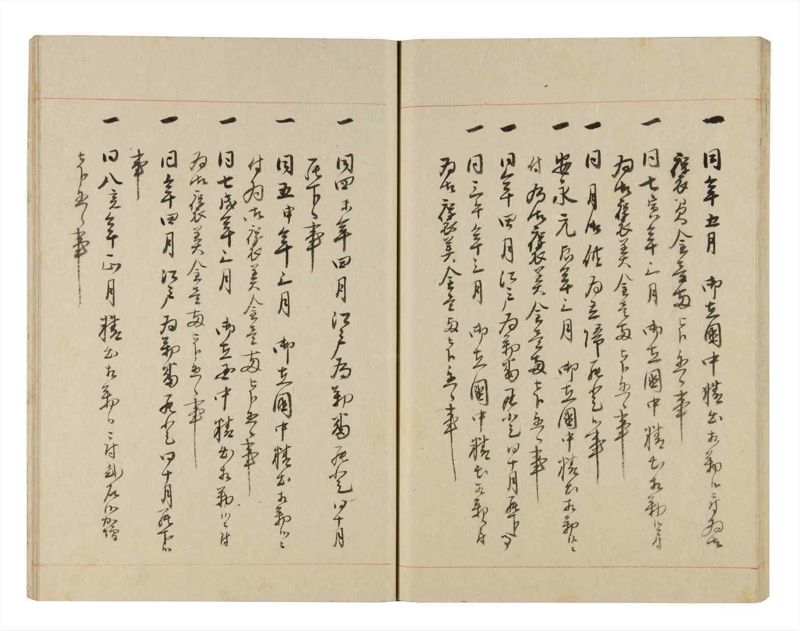 一 同年五月 御在國中精出相勤候ニ付為御
褒美金壱両被下置候事
一 同七寅年三月 御在國中精出相勤候ニ付
為御褒美金壱両被下置候事
一 同月御供為立帰罷登候事
一 安永元辰年三月 御在國中精出相勤候ニ
付為御褒美金壱両被下置候事
一 同年四月江戸為勤番罷登同十月罷下候事
一 同三午年三月 御在國中精出相勤候ニ付
為御褒美金壱両被下置候事
一 同四未年四月江戸為勤番罷登同十月
罷下候事
一 同五申年三月 御在國中精出相勤候ニ
付為御褒美金壱両被下置候事
一 同七戌年三月 御在国中精出相勤候ニ付
為御褒美金壱両被下置候事
一 同年四月江戸為勤番罷登同十月罷下候
事
一 同八亥年正月精出相勤候ニ付
被下置候事